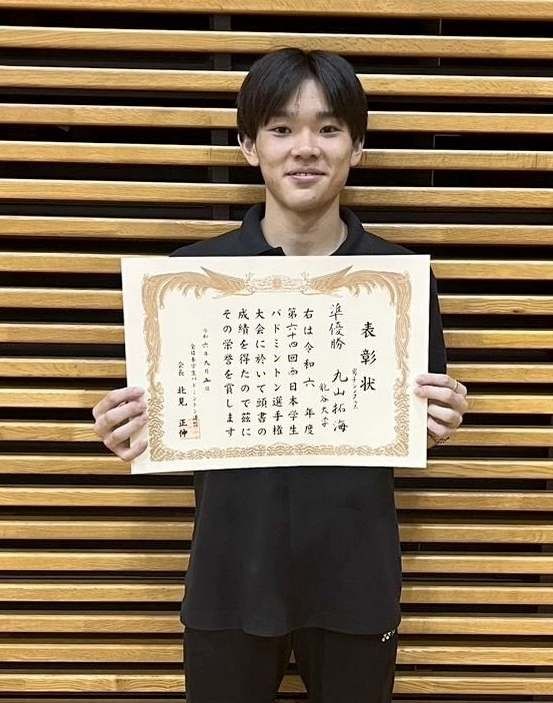 表彰状
男子シングルス
龍谷大学
準優勝 丸山拓海
右は令和六年度
第六十四回西日本学生
バドミントン選手権
大会に於いて頭書の
成績を得たので茲に
その栄誉を賞します
令和六年九月五日
全日本学生バドミントン連盟
会長 北見 正伸
YONEX